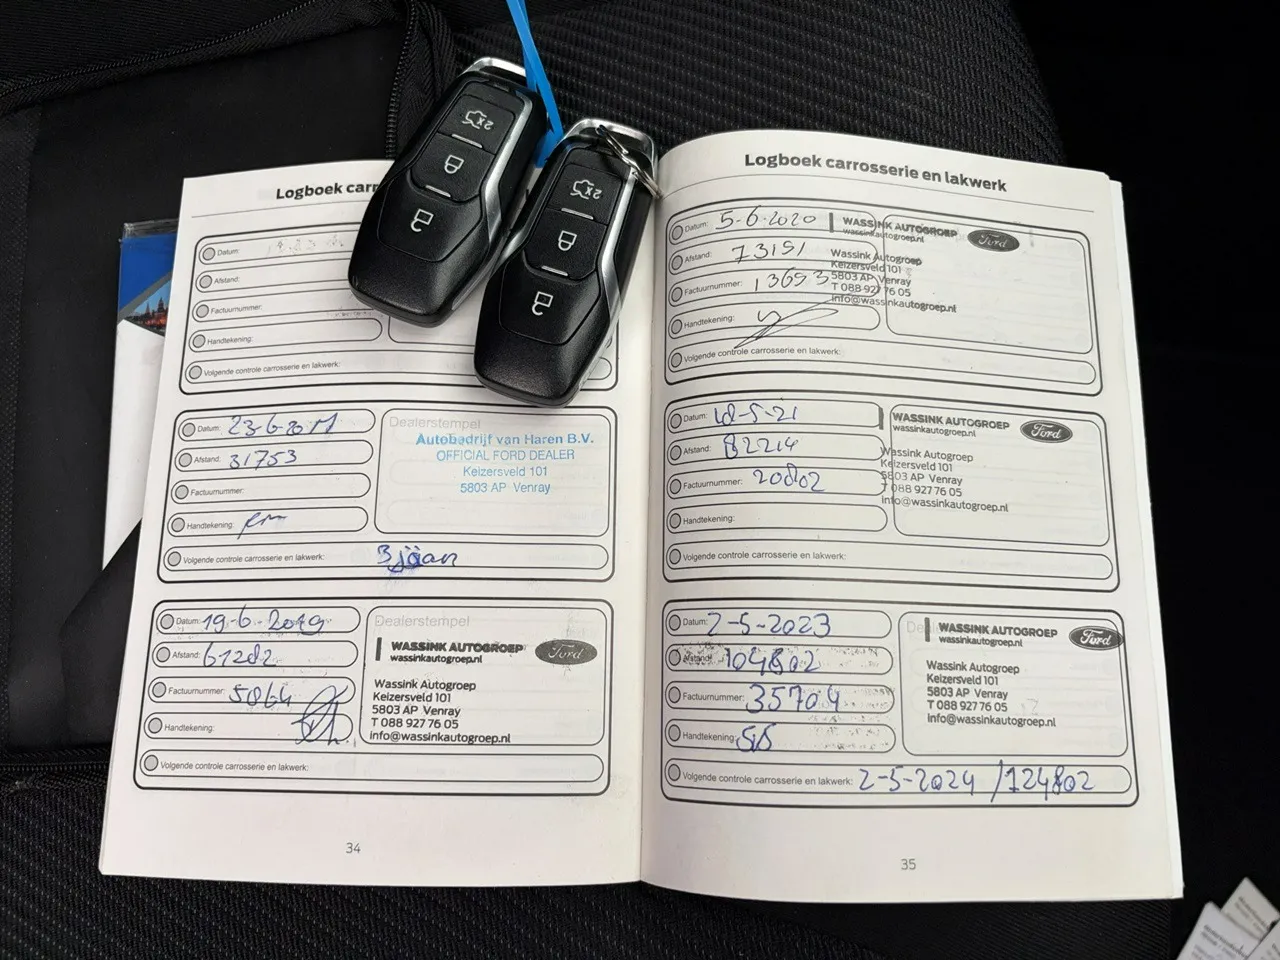 Logboek carr
Datum:
Afstand:
Factuurnummer:
Handtekening:
Volgende controle carrosserie en lakwerk:
Datum: 23-6-20
Afstand: 31753
Factuurnummer:
Handtekening:
Volgende controle carrosserie en lakwerk:
Dealerstempel
Autobedrijf van Haren B.V.
OFFICIAL FORD DEALER
Keizersveld 101
5803 AP Venray
Datum: 19-6-2019
Afstand: 61282
Factuurnummer: 5864
Handtekening:
Volgende controle carrosserie en lakwerk:
Dealerstempel
WASSINK AUTOGROEP
wassinkautogroep.nl
Ford
Wassink Autogroep
Keizersveld 101
5803 AP Venray
T 088 927 76 05
info@wassinkautogroep.nl
34
2x
2x
Logboek carrosserie en lakwerk
Datum: 5-6-2020
Afstand: 73151
Factuurnummer: 13693
Handtekening:
Volgende controle carrosserie en lakwerk:
WASSINK AUTOGROEP
wassinkautogroep.nl
Ford
Wassink Autogroep
Keizersveld 101
5803 AP Venray
T 088 927 76 05
info@wassinkautogroep.nl
Datum: -5-21
Afstand: 82214
Factuurnummer: 20802
Handtekening:
Volgende controle carrosserie en lakwerk:
WASSINK AUTOGROEP
wassinkautogroep.nl
Ford
Wassink Autogroep
Keizersveld 101
5803 AP Venray
T 088 927 76 05
info@wassinkautogroep.nl
Datum: 2-5-2023
Afstand: 104802
Factuurnummer: 35704
Handtekening:
Volgende controle carrosserie en lakwerk: 2-5-2024 /124802
De
WASSINK AUTOGROEP
wassinkautogroep.nl
Ford
Wassink Autogroep
Keizersveld 101
5803 AP Venray
T 088 927 76 05
info@wassinkautogroep.nl
35